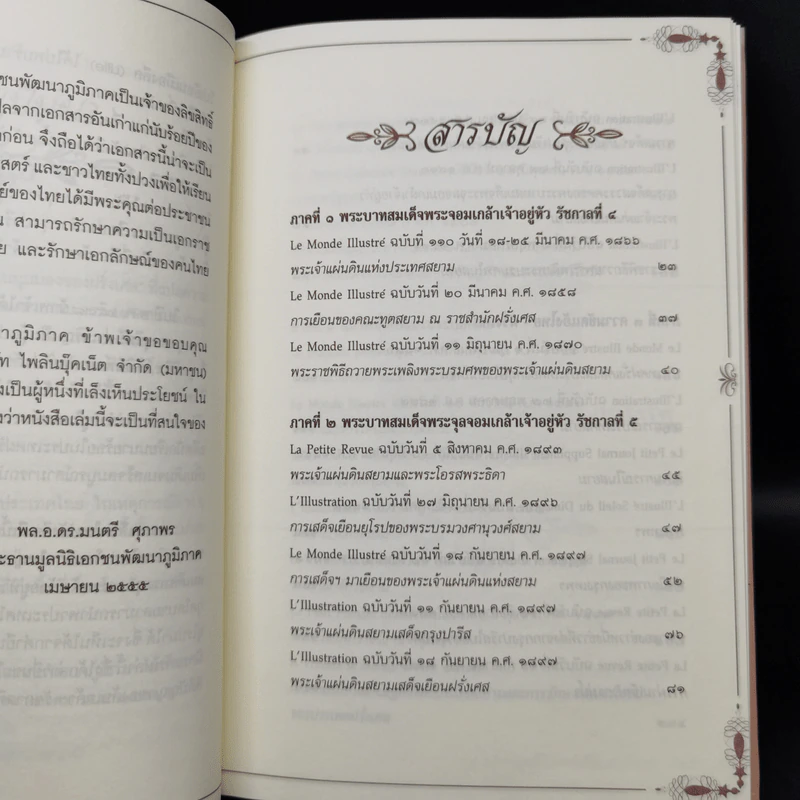 ชนพัฒนาภูมิภาคเป็นเจ้าของลิขสิทธิ์
ปลจากเอกสารอันเก่าแก่นับร้อยปีของ
งก่อน จึงถือได้ว่าเอกสารนี้น่าจะเป็น
สตร์ และชาวไทยทั้งปวงเพื่อให้เรียน
ย์ของไทยได้มีพระคุณต่อประชาชน
น สามารถรักษาความเป็นเอกราช
ย และรักษาเอกลักษณ์ของคนไทย
าภูมิภาค ข้าพเจ้าขอขอบคุณ
ัท ไพลินบุ๊คเน็ต จำกัด (มหาชน)
งเป็นผู้หนึ่งที่เล็งเห็นประโยชน์ ใน
งว่าหนังสือเล่มนี้จะเป็นที่สนใจของ
พล.อ.ดร.มนตรี ศุภาพร
ะธานมูลนิธิเอกชนพัฒนาภูมิภาค
เมษายน ๒๕๕๕
สารบัญ
ภาคที่ ๑ พระบาทสมเด็จพระจอมเกล้าเจ้าอยู่หัว รัชกาลที่ ๔
Le Monde Illustré ฉบับที่ ๑๑๐ วันที่ ๑๘-๒๕ มีนาคม ค.ศ. ๑๘๖๖
พระเจ้าแผ่นดินแห่งประเทศสยาม ๒๓
Le Monde Illustré ฉบับวันที่ ๒๐ มีนาคม ค.ศ. ๑๘๕๘
การเยือนของคณะทูตสยาม ณ ราชสำนักฝรั่งเศส ๓๗
Le Monde Illustré ฉบับวันที่ ๑๑ มิถุนายน ค.ศ. ๑๘๗๐
พระราชพิธีถวายพระเพลิงพระบรมศพของพระเจ้าแผ่นดินสยาม ๔๐
ภาคที่ ๒ พระบาทสมเด็จพระจุลจอมเกล้าเจ้าอยู่หัว รัชกาลที่ ๕
La Petite Revue ฉบับวันที่ ๕ สิงหาคม ค.ศ. ๑๘๙๓
พระเจ้าแผ่นดินสยามและพระโอรสพระธิดา ๔๕
L'Illustration ฉบับวันที่ ๒๗ มิถุนายน ค.ศ. ๑๘๙๖
การเสด็จเยือนยุโรปของพระบรมวงศานุวงศ์สยาม ๔๗
Le Monde Illustré ฉบับวันที่ ๑๘ กันยายน ค.ศ. ๑๘๙๗
การเสด็จฯ มาเยือนของพระเจ้าแผ่นดินแห่งสยาม ๕๒
L'Illustration ฉบับวันที่ ๑๑ กันยายน ค.ศ. ๑๘๙๗
พระเจ้าแผ่นดินสยามเสด็จกรุงปารีส ๗๖
L'Illustration ฉบับวันที่ ๑๘ กันยายน ค.ศ. ๑๘๙๗
พระเจ้าแผ่นดินสยามเสด็จเยือนฝรั่งเศส ๘๑